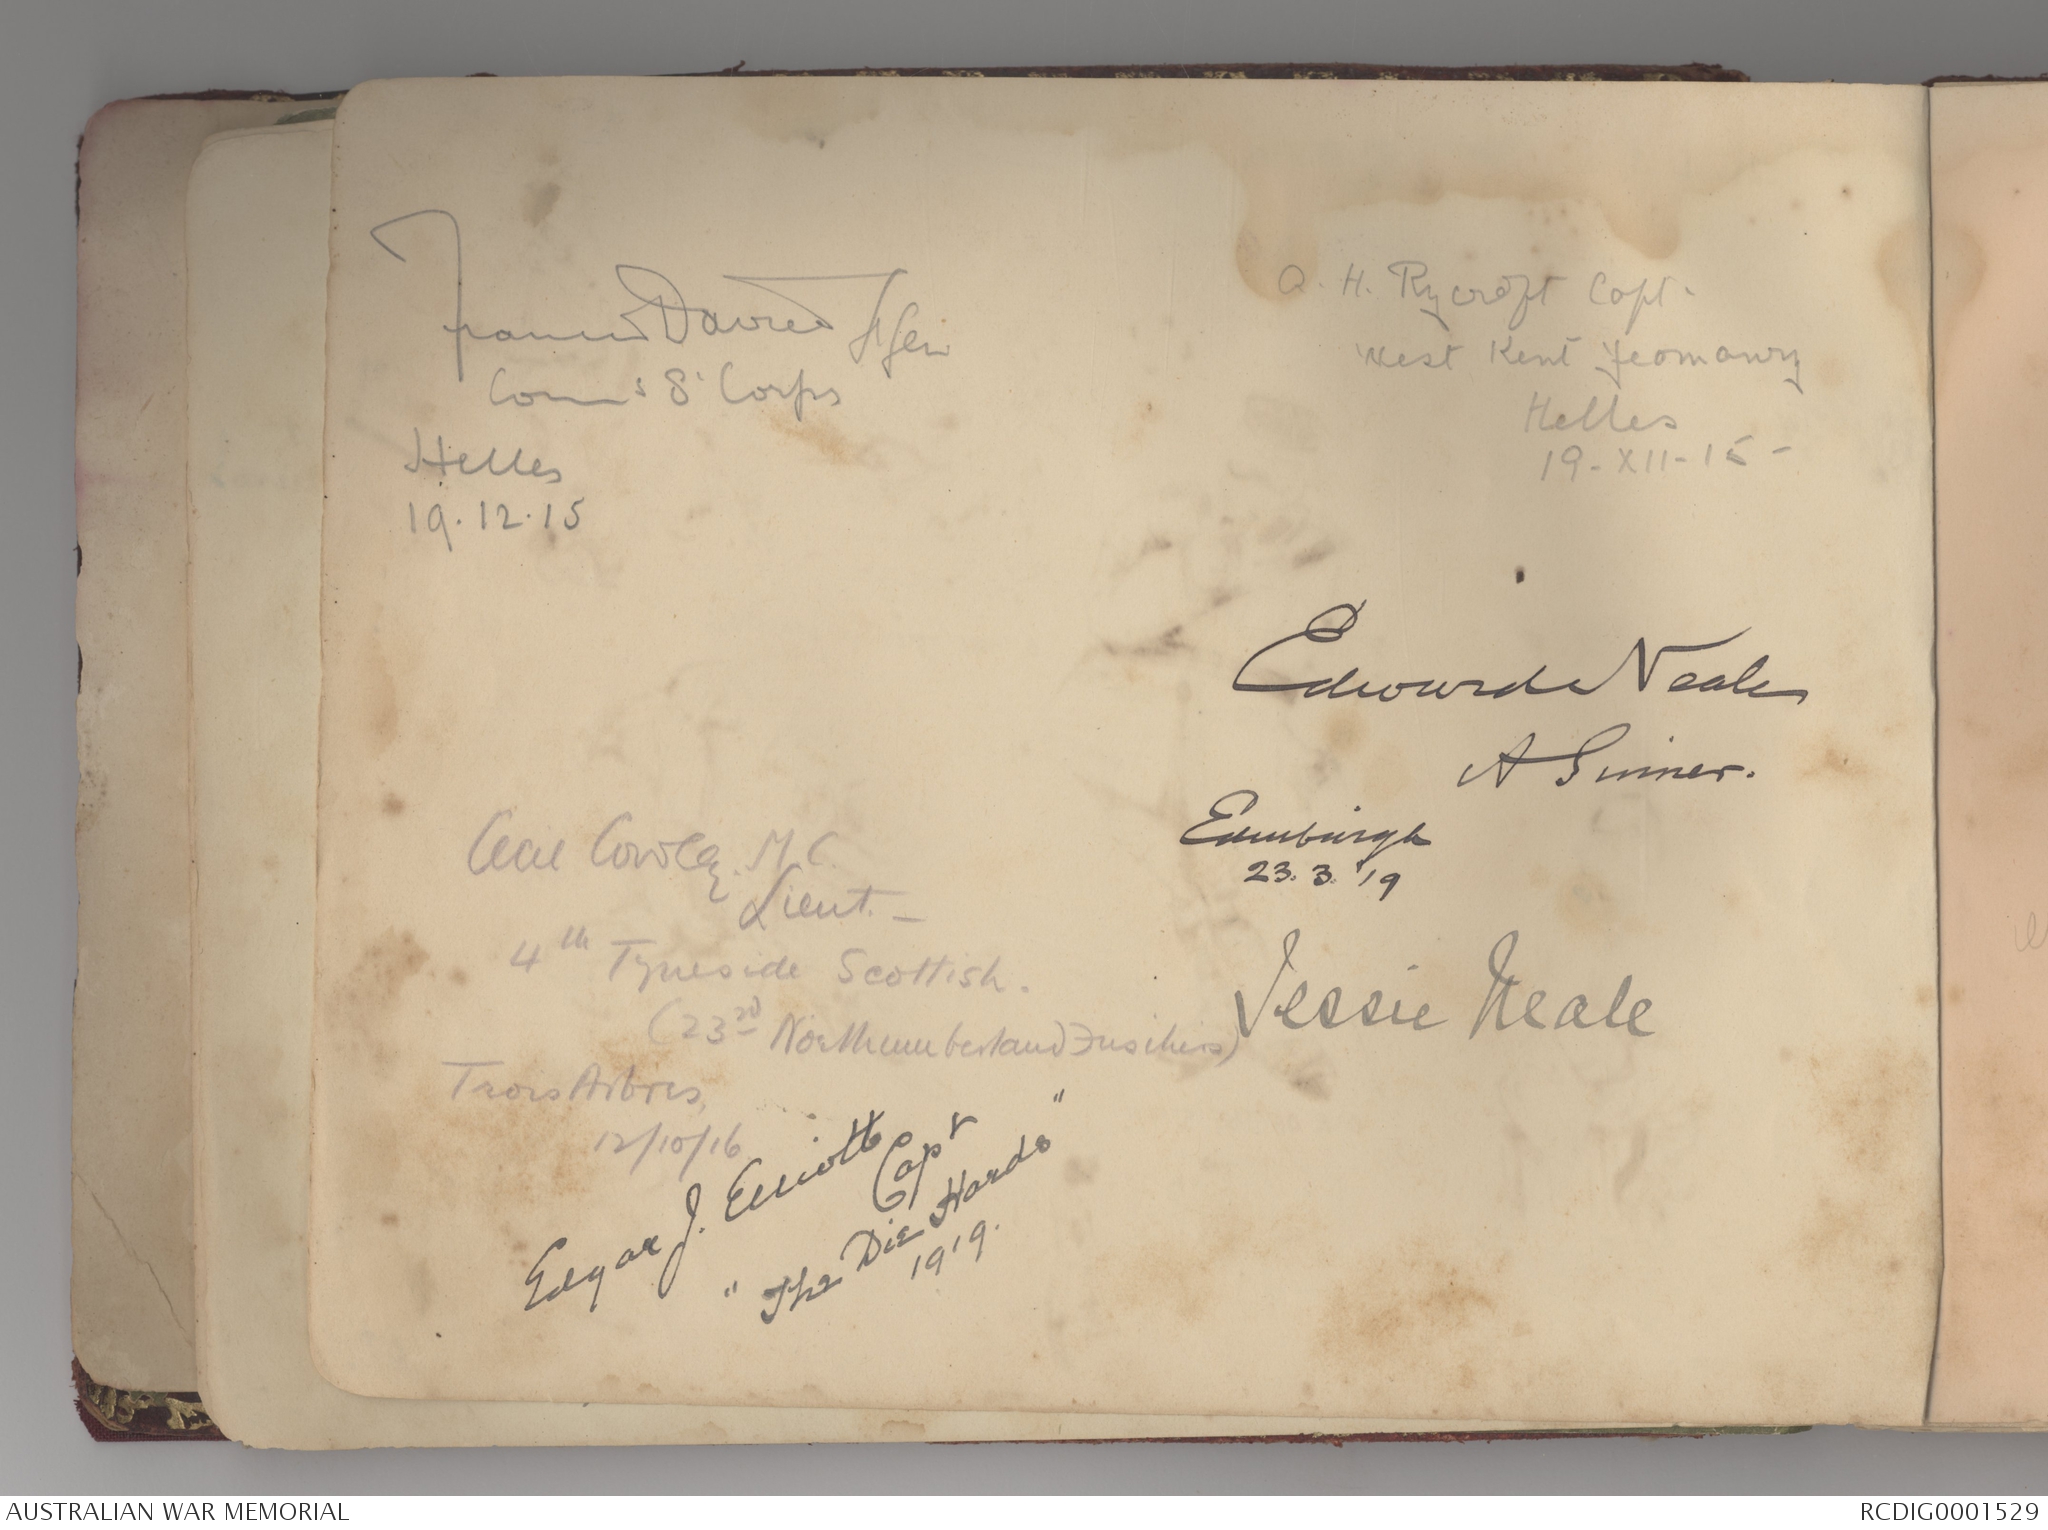 Francis Davies Lt Gen
Comm 8 Corps
Helles
19.12.15
A. H. Rycroft Capt.
West Kent Yeomanry
Helles
19-XII-15-
Edward Neale
A Sinner.
Edinburgh
23.3.'19
Jessie Neale
Cecil Cowley. M.C.
Lieut. -
4th Tyneside Scottish.
(23rd Northumberland Fusiliers)
Trois Arbres,
12/10/16
Edgar J. Elliott
Capt
"The Die Hards"
1919.
AUSTRALIAN WAR MEMORIAL
RCDIG0001529